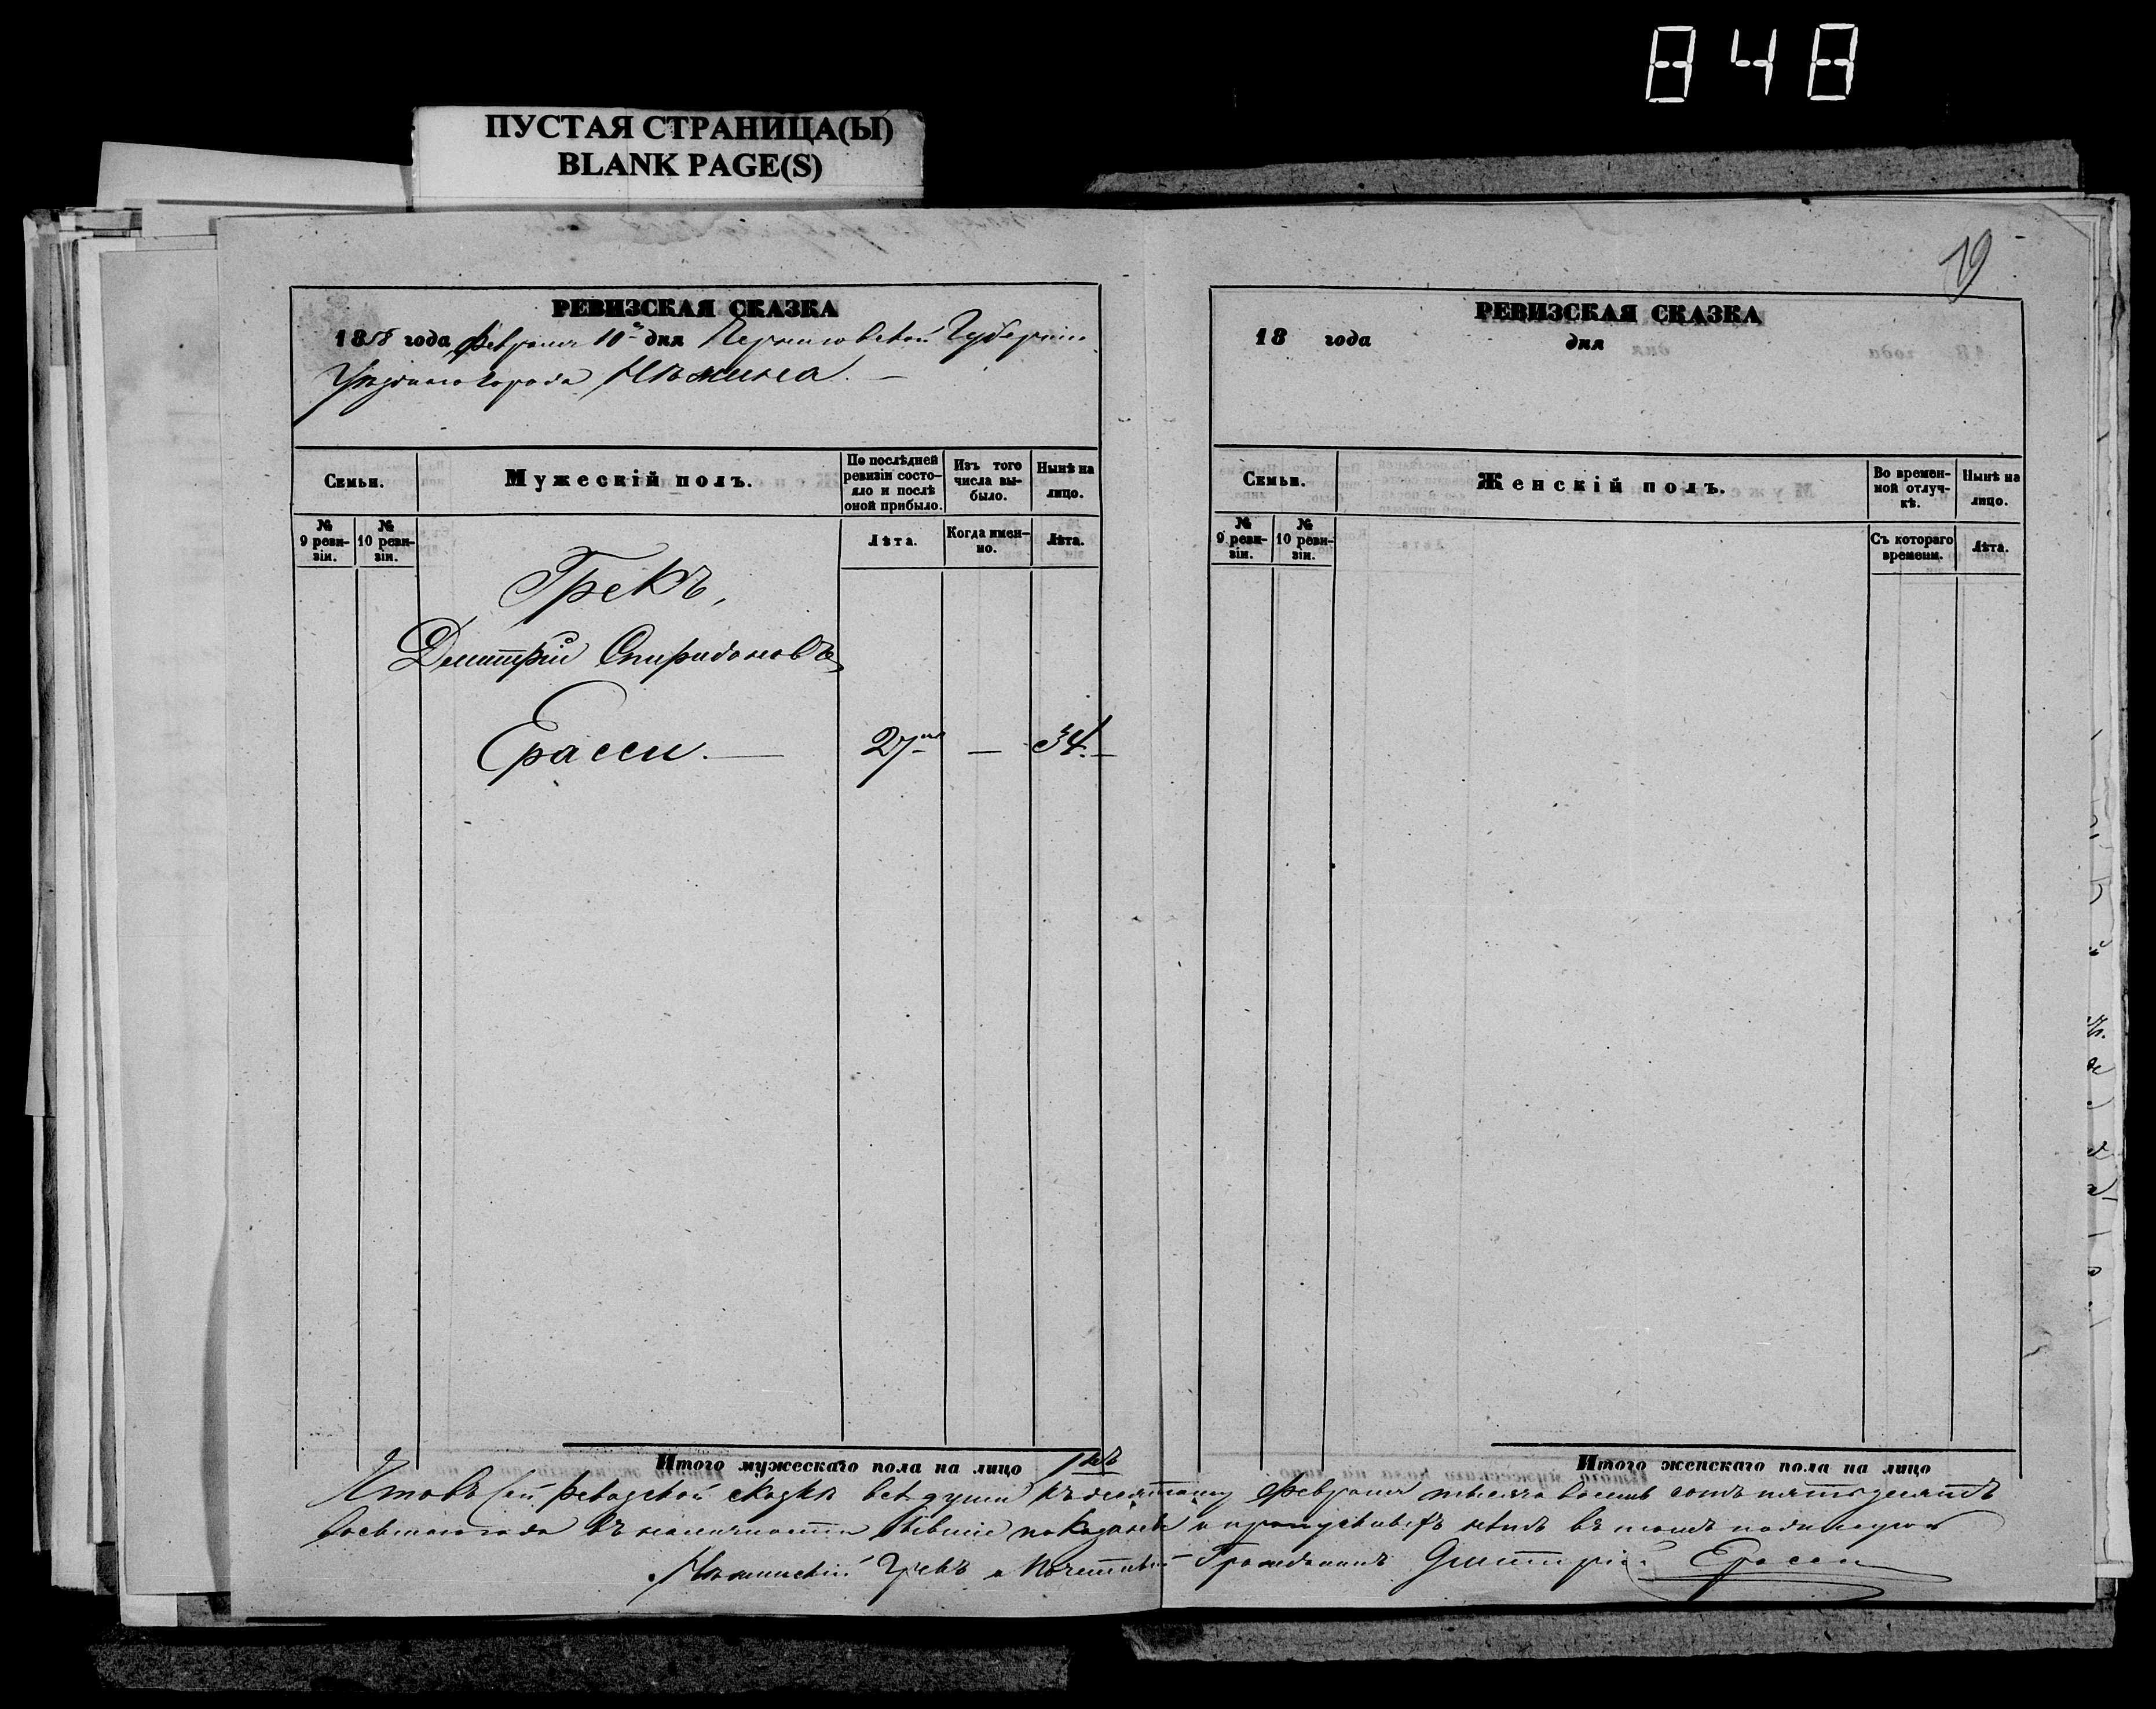 848
ПУСТАЯ СТРАНИЦА(Ы)
BLANK PAGE(S)
19
РЕВИЗСКАЯ СКАЗКА
1858 года февраля 10го дня Черниговской Губернiи
Уѣзднаго города Нѣжина. —
Семьи.
Мужескiй полъ.
По послѣдней ревизiи состояло и послѣ оной прибыло.
Изъ того числа выбыло.
Нынѣ на лицо.
№ 9 ревизiи.
№ 10 ревизiи.
Лѣта.
Когда именно.
Лѣта.
Грекъ,
Дмитрiй Спиридоновъ
Ерасси. — 27 — 34. —
Итого мужескаго пола на лицо 1
РЕВИЗСКАЯ СКАЗКА
18 года дня
Семьи.
Женскiй полъ.
Во временной отлучкѣ.
Нынѣ на лицо.
№ 9 ревизiи.
№ 10 ревизiи.
Съ котораго времени.
Лѣта.
Итого женскаго пола на лицо
Что въ сей ревизской сказкѣ всѣ души къ десятому февраля тысяча восемь сотъ пятьдесятъ
восьмаго года въ наличности бывшiе показаны и пропущенныхъ нѣтъ въ томъ подписуюсь
Нѣжинскiй Грекъ и Почетный Гражданинъ Дмитрiй Ерасси